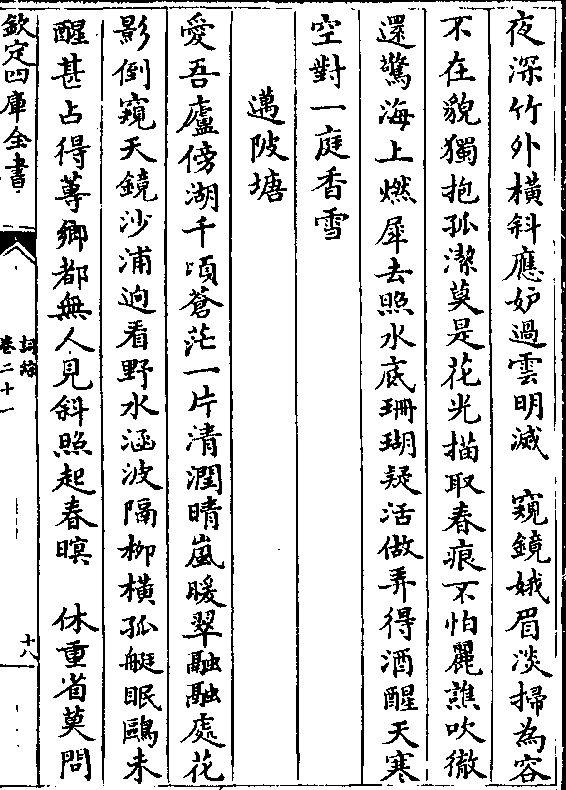 夜深竹外横斜應妒過雲明滅　窺鏡娥眉淡掃為容
不在貌獨抱孤潔莫是花光描取春痕不怕麗譙吹徹
還驚海上燃犀去照水底珊瑚疑活做弄得酒醒天寒
空對一庭香雪
邁陂塘
愛吾廬傍湖千頃蒼茫一片清潤晴嵐暖翠融融處花
影倒窺天鏡沙浦逈看野水涵波隔柳横孤艇眠鷗未
醒甚占得蓴鄉都無人見斜照起春暝　休重省莫問
欽定四庫全書
詞綜
卷二十一
十八